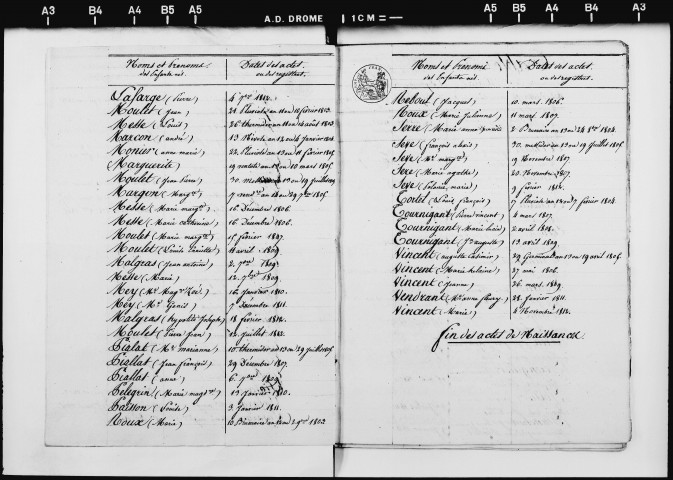 A3 B4 A4 B5 A5 A.D. DROME 1CM = A5 B5 A4 B4 A3
Noms et Prénoms Dates des actes
des Enfants nés. ou des registres.
Lafarge (Pierre) 4 7bre 1812.
Moulet (Jean) 21 Pluviose an 11 ou 10 février 1803.
Messe (Louis) 26 thermidor an 11 ou 14 août 1803
Marcon (andré) 13 Nivose an 12 ou 4 Janvier 1804.
Monier (anne marie) 22 Pluviose an 13 ou 11 février 1805.
Marguerite 19 ventose an 13 ou 10 mars 1805.
Moulet (Jean Pierre)
Margon (Marg.te)
Messe (Marie marg.te) 16 Décembre 1806.
Messe (Marie catherine) 16 Décembre 1806.
Moulet (Marie marg.te) 15 février 1807.
Moulet (Louis Camille) 11 avril 1809.
Malgras (Jean antoine) 2. 7bre 1809.
Messe (Marie) 12. 7bre 1809
Mey (Mie Mag.ne Zoé.) 16 Janvier 1810.
Mey (Mie Zenis) 7 Décembre 1811.
Malgras (hyppolite Joseph) 18 février 1812.
Moulet (Pierre Jean) 12 Juillet 1812.
Pialat (Mie marianne) 10 thermidor an 13 ou 29 Juillet 1805
Piallat (Jean François) 29 Décembre 1807.
Piallat (anne) 6. 7bre 1809
Pelegrin (Marie magd.ne) 13 Janvier 1810.
Paisson (Louise) 3. Janvier 1811.
Roux (Marie)
Noms et Prénoms Dates des actes
des Enfants nés. ou des registres.
Reboul (Jacques) 10 mars 1806.
Roux (Marie Julienne) 11 mars 1807.
Serre (Marie anne)
Seye (françois alexis) 30 messidor an 13 ou 19 Juillet 1805.
Seve (Mie marg.te) 19 Novembre 1807.
Seve (Marie agathe) 20 Novembre 1807.
Seve (marie) 9 février 1812.
Tortel (Louis François) 17 Pluviose an 12 ou 7 février 1804.
Tournigant (Pierre vincent) 4 mars 1807.
Tournigant (Marie Luce) 2 avril 1808.
Tournigant (auguste) 13 avril 1809.
Vincent (auguste Casimir) 29 Germinal an 13 ou 19 avril 1805.
Vincent (Marie helaine) 27 mai 1806.
Vincent (Jeanne) 26 mars 1809.
Vendrant 28 février 1811.
Vincent (Marie) 4 Novembre 1812.
fin des actes de Naissances.